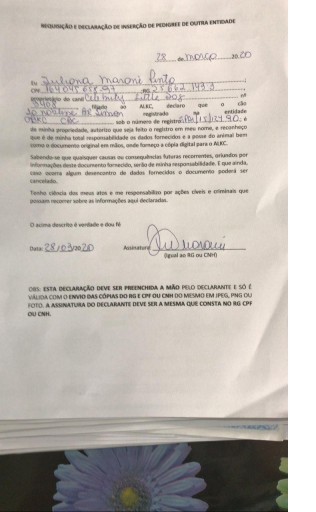 REQUISIÇÃO E DECLARAÇÃO DE INSERÇÃO DE PEDIGREE DE OUTRA ENTIDADE
28 de março 2020
Eu Juliana Maroni Pinto
CPF RG
proprietário do canil Celebrity Little Dog nº
filiado ao ALKC, declaro que o cão
registrado na entidade
CBKC sob o número de registro é
de minha propriedade, autorizo que seja feito o registro em meu nome, e reconheço
que é de minha total responsabilidade os dados fornecidos e a posse do animal bem
como o documento original em mãos, onde forneço a cópia digital para o ALKC.
Sabendo-se que quaisquer causas ou consequências futuras recorrentes, oriundos por
informações deste documento fornecido, serão de minha responsabilidade. E que ainda,
caso ocorra algum desencontro de dados fornecidos o documento poderá ser
cancelado.
Tenho ciência dos meus atos e me responsabilizo por ações cíveis e criminais que
possam recorrer sobre as informações aqui declaradas.
O acima descrito é verdade e dou fé
Data: 28/03/2020 Assinatura
(igual ao RG ou CNH)
OBS: ESTA DECLARAÇÃO DEVE SER PREENCHIDA A MÃO PELO DECLARANTE E SÓ É
VÁLIDA COM O ENVIO DAS CÓPIAS DO RG E CPF OU CNH DO MESMO EM JPEG, PNG OU
FOTO. A ASSINATURA DO DECLARANTE DEVE SER A MESMA QUE CONSTA NO RG CPF
OU CNH.